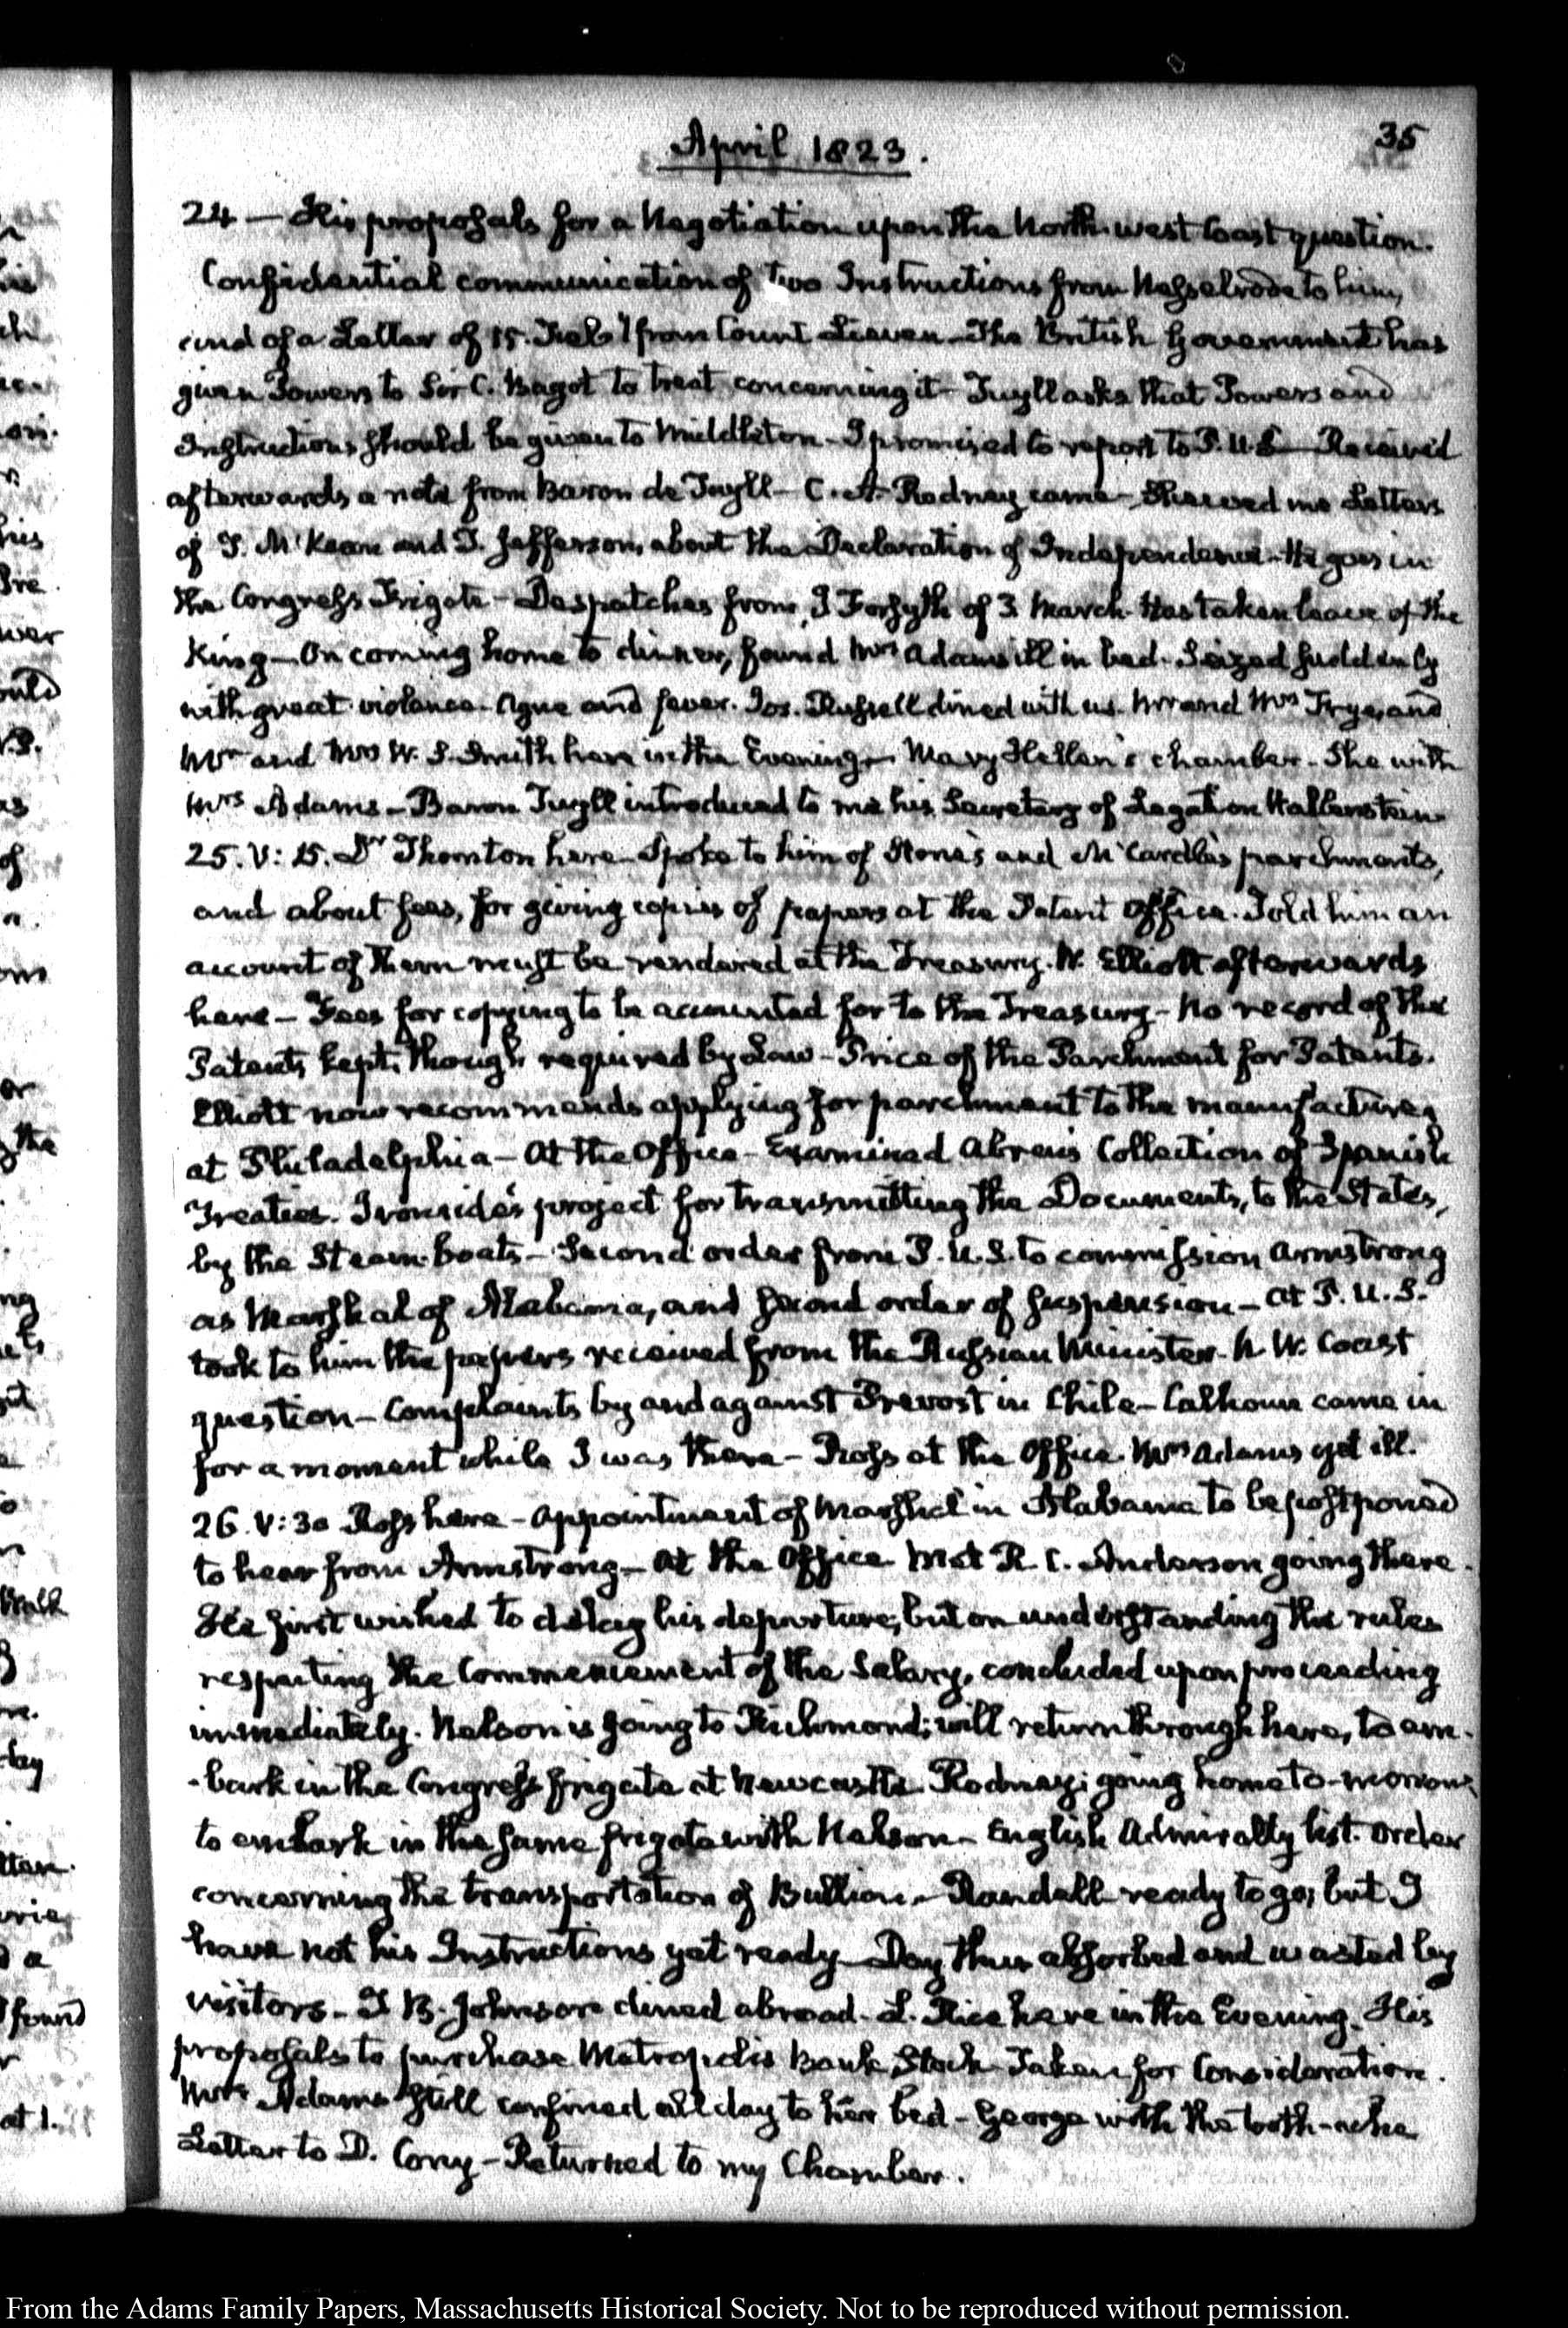 April 1823.
35
24 — His proposals for a Negotiation upon the North-west Coast question.
Confidential communication of two Instructions from Nesselrode to him,
and of a Letter of 15. Feby from Count Lieven — The British Government has
given Powers to Sir C. Bagot to treat concerning it — Tuyll asks that Powers and
Instructions should be given to Middleton — I promised to report to P. U. S — Received
afterwards a note from Baron de Tuyll — C. A. Rodney came — Shewed me Letters
of T. McKean and T. Jefferson, about the Declaration of Independence — He goes in
the Congress Frigate — Despatches from J Forsyth of 3 March. Has taken leave of the
King — On coming home to dinner, found Mrs Adams ill in bed. Seized suddenly
with great violence. Ague and fever. Jos. Russell dined with us. Mr and Mrs Frye, and
Mr and Mrs W. S. Smith here in the Evening — Mary Hellen's chamber. She with
Mrs Adams — Baron Tuyll introduced to me his Secretary of Legation Wallenstein.
25. V: 15. Dr Thornton here — Spoke to him of Stone's and McCardle's parchments,
and about fees, for giving copies of papers at the Patent Office. Told him an
account of them must be rendered at the Treasury. W. Elliott afterwards
here — Fees for copying to be accounted for to the Treasury — No record of the
Patents kept, though required by Law — Price of the Parchment for Patents.
Elliott now recommends applying for parchment to the manufacturer
at Philadelphia — At the Office — Examined Abreu's Collection of Spanish
Treaties. Ironside's project for transmitting the Documents, to the States,
by the Steam-boats — Second order from P. U. S. to commission Armstrong
as Marshal of Alabama, and second order of suspension — At P. U. S.
took to him the papers received from the Russian Minister. N. W. Coast
question — Complaints by and against Prevost in Chile — Calhoun came in
for a moment while I was there — Ross at the Office. Mrs Adams yet ill.
26. V: 30 Ross here — Appointment of Marshal in Alabama to be postponed
to hear from Armstrong — At the Office Met R. C. Anderson going there.
He first wished to delay his departure, but on understanding the rules
respecting the Commencement of the Salary, concluded upon proceeding
immediately. Nelson is going to Richmond; will return through here, to em-
-bark in the Congress frigate at Newcastle. Rodney; going home to-morrow,
to embark in the same frigate with Nelson — English Admiralty list. Order
concerning the transportation of Bullion — Randall ready to go; but I
have not his Instructions yet ready — Day thus absorbed and wasted by
visitors — T B. Johnson dined abroad. L. Rice here in the Evening. His
proposals to purchase Metropolis Bank Stock. Taken for Consideration.
Mrs Adams still confined all day to her bed — George with the tooth-ache
Letter to D. Cony — Returned to my Chamber.
From the Adams Family Papers, Massachusetts Historical Society. Not to be reproduced without permission.